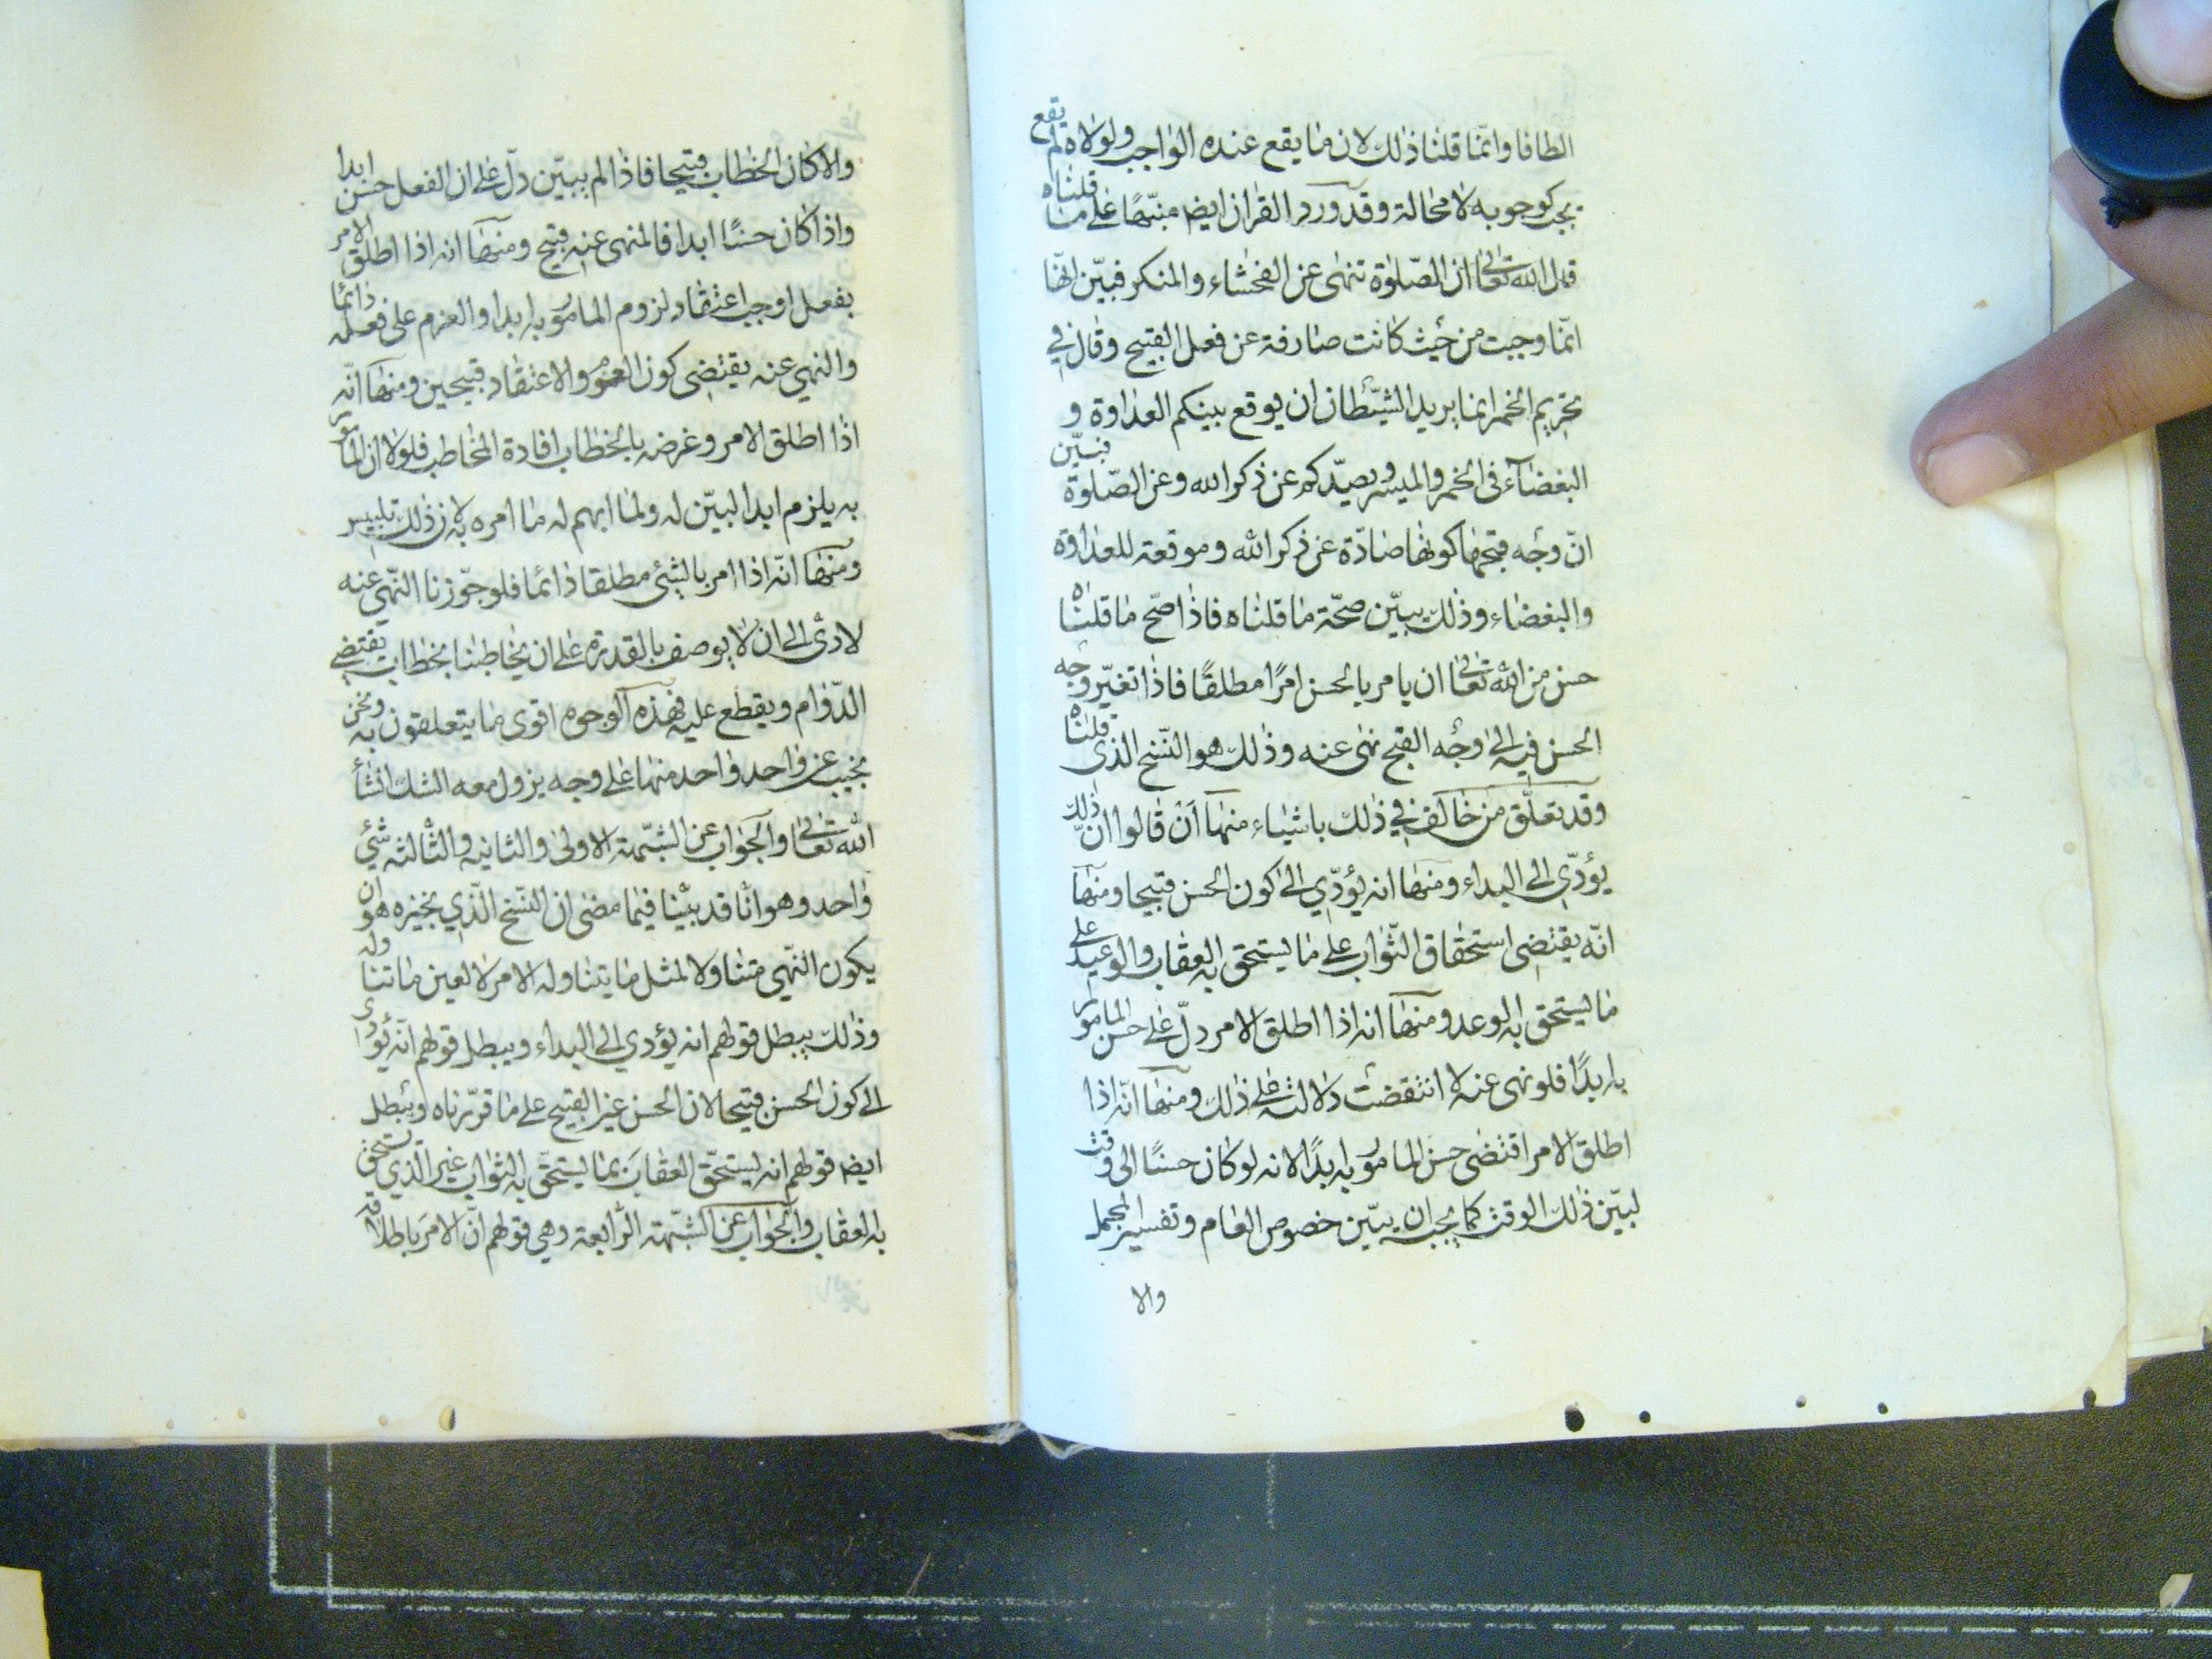 الطافا وانّما قلنا ذلك لان ما يقع عنده الواجب ولولاه لم يقع
يجب كوجوبه لا محالة وقد ورد القران ايضا منبّهًا على ما قلناه
قال الله تعالى ان الصّلوة تنهى عن الفحشاء والمنكر فبيّن انّها
انّما وجبت من حيث كانت صارفة عن فعل القبيح وقال في
تحريم الخمر انما يريد الشّيطان ان يوقع بينكم العداوة و
البغضاء في الخمر والميسر ويصدّكم عن ذكر الله وعن الصّلوة فبيّن
انّ وجه قبحها كونها صادّة عن ذكر الله وموقعة للعداوة
والبغضاء وذلك يبيّن صحّة ما قلناه فاذا صحّ ما قلناه
حسن من الله تعالى ان يامر بالحسن امرًا مطلقًا فاذا تغيّر وجه
الحسن فيه الى وجه القبح نهى عنه وذلك هو النّسخ الذى قلناه
وقد تعلّق من خالف في ذلك باشياء منها أن قالوا انّ ذلك
يؤدّي الى البداء ومنها انه يؤدّي الى كون الحسن قبيحا ومنها
انّه يقتضى استحقاق الثّواب على ما يستحق به العقاب والوعيد على
ما يستحق به الوعد ومنها انه اذا اطلق الامر دلّ على حسن المامور
به ابدًا فلو نهى عنه لا انتقضت دلالته على ذلك ومنها انّه اذا
اطلق الامر اقتضى حسن المامور به ابدًا لانه لو كان حسنًا الى وقت
لبيّن ذلك الوقت كما يجب ان يبيّن خصوص العام وتفسير المجمل
والا
والا كان الخطاب قبيحا فاذا لم يبيّن دلّ على ان الفعل حسن ابدا
واذا كان حسنًا ابدا فالمنهى عنه قبيح ومنها انه اذا اطلق الامر
بفعل اوجب اعتقاد لزوم المامور به ابدا والعزم على فعله دائما
والنهي عنه يقتضى كون العزم والاعتقاد قبيحين ومنها انّه
اذا اطلق الامر وغرضه بالخطاب افادة المخاطب فلولا ان المامور
به يلزم ابدا لبيّن له ولما ابهم له ما امره به لان ذلك تلبيس
ومنها انّه اذا امر بالشئ مطلقا دائما فلو جوّزنا النّهى عنه
لادى الى ان لا يوصف بالقدرة على ان يخاطبنا بخطاب يقتضي
الدّوام ويقطع عليه فهذه الوجوه اقوى ما يتعلقون به ونحن
نجيب عن واحد واحد منها على وجه يزول معه الشك انشأ
الله تعالى والجواب عن الشبّهة الاولى والثانيه والثالثه شئي
واحد وهو انّا قد بيّنا فيما مضى ان النّسخ الّذي نجيزه هو ان
يكون النّهي متناولا لمثل ما يتناوله الامر لا لعين ما تناوله
وذلك يبطل قولهم انه يؤدي الى البداء ويبطل قولهم انّه يؤدى
الى كون الحسن قبيحا لان الحسن غير القبيح على ما قرّرناه ويبطل
ايضا قولهم انه يستحّق العقاب بما يستحّق به الثواب غير الّذي يستحق
به العقاب والجواب عن الشبّهة الرّابعة وهي قولهم انّ الامر باطلاقه